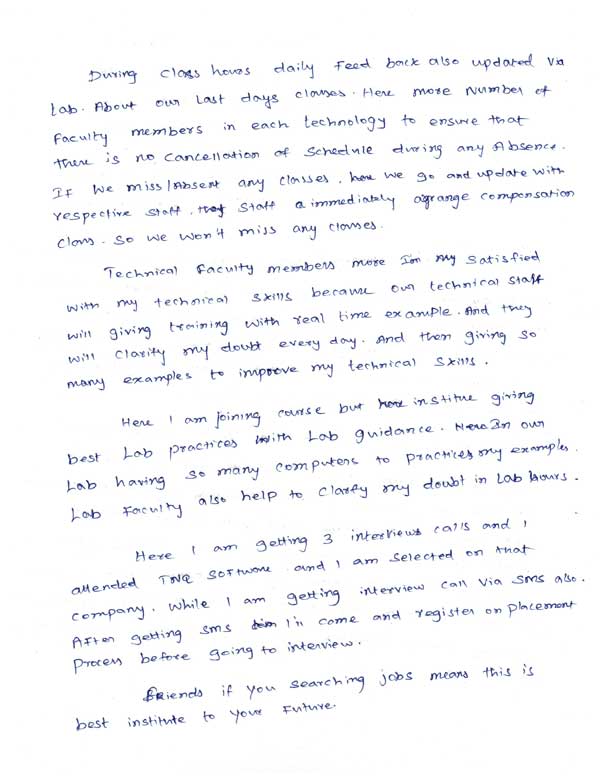 During class hours daily Feed back also updated via
Lab. About our Last days classes. Here more Number of
Faculty members in each technology to ensure that
there is no Cancellation of Schedule during any Absence.
If We miss/Absent any classes, here We go and update with
respective Staff. Staff immediately agrange compensation
Class. So We Won't miss any classes.
Technical Faculty members more Im my Satisfied
With my technical Skills because our technical staff
will giving training with real time example. And they
will Clarify my doubt every day. And then giving so
many examples to improve my technical Skills.
Here I am joining course but here institue giving
best Lab practices With Lab guidance. In our
Lab having So many Computers to Practices my examples.
Lab Faculty also help to Clarify my doubt in Lab Hours.
Here I am getting 3 interviews calls and I
attended TNQ Software and I am Selected on that
company. While I am getting interview call via SMS also.
After getting SMS I'n come and register on Placement
Process before going to interview.
Friends if you Searching jobs means this is
best institute to your Future.